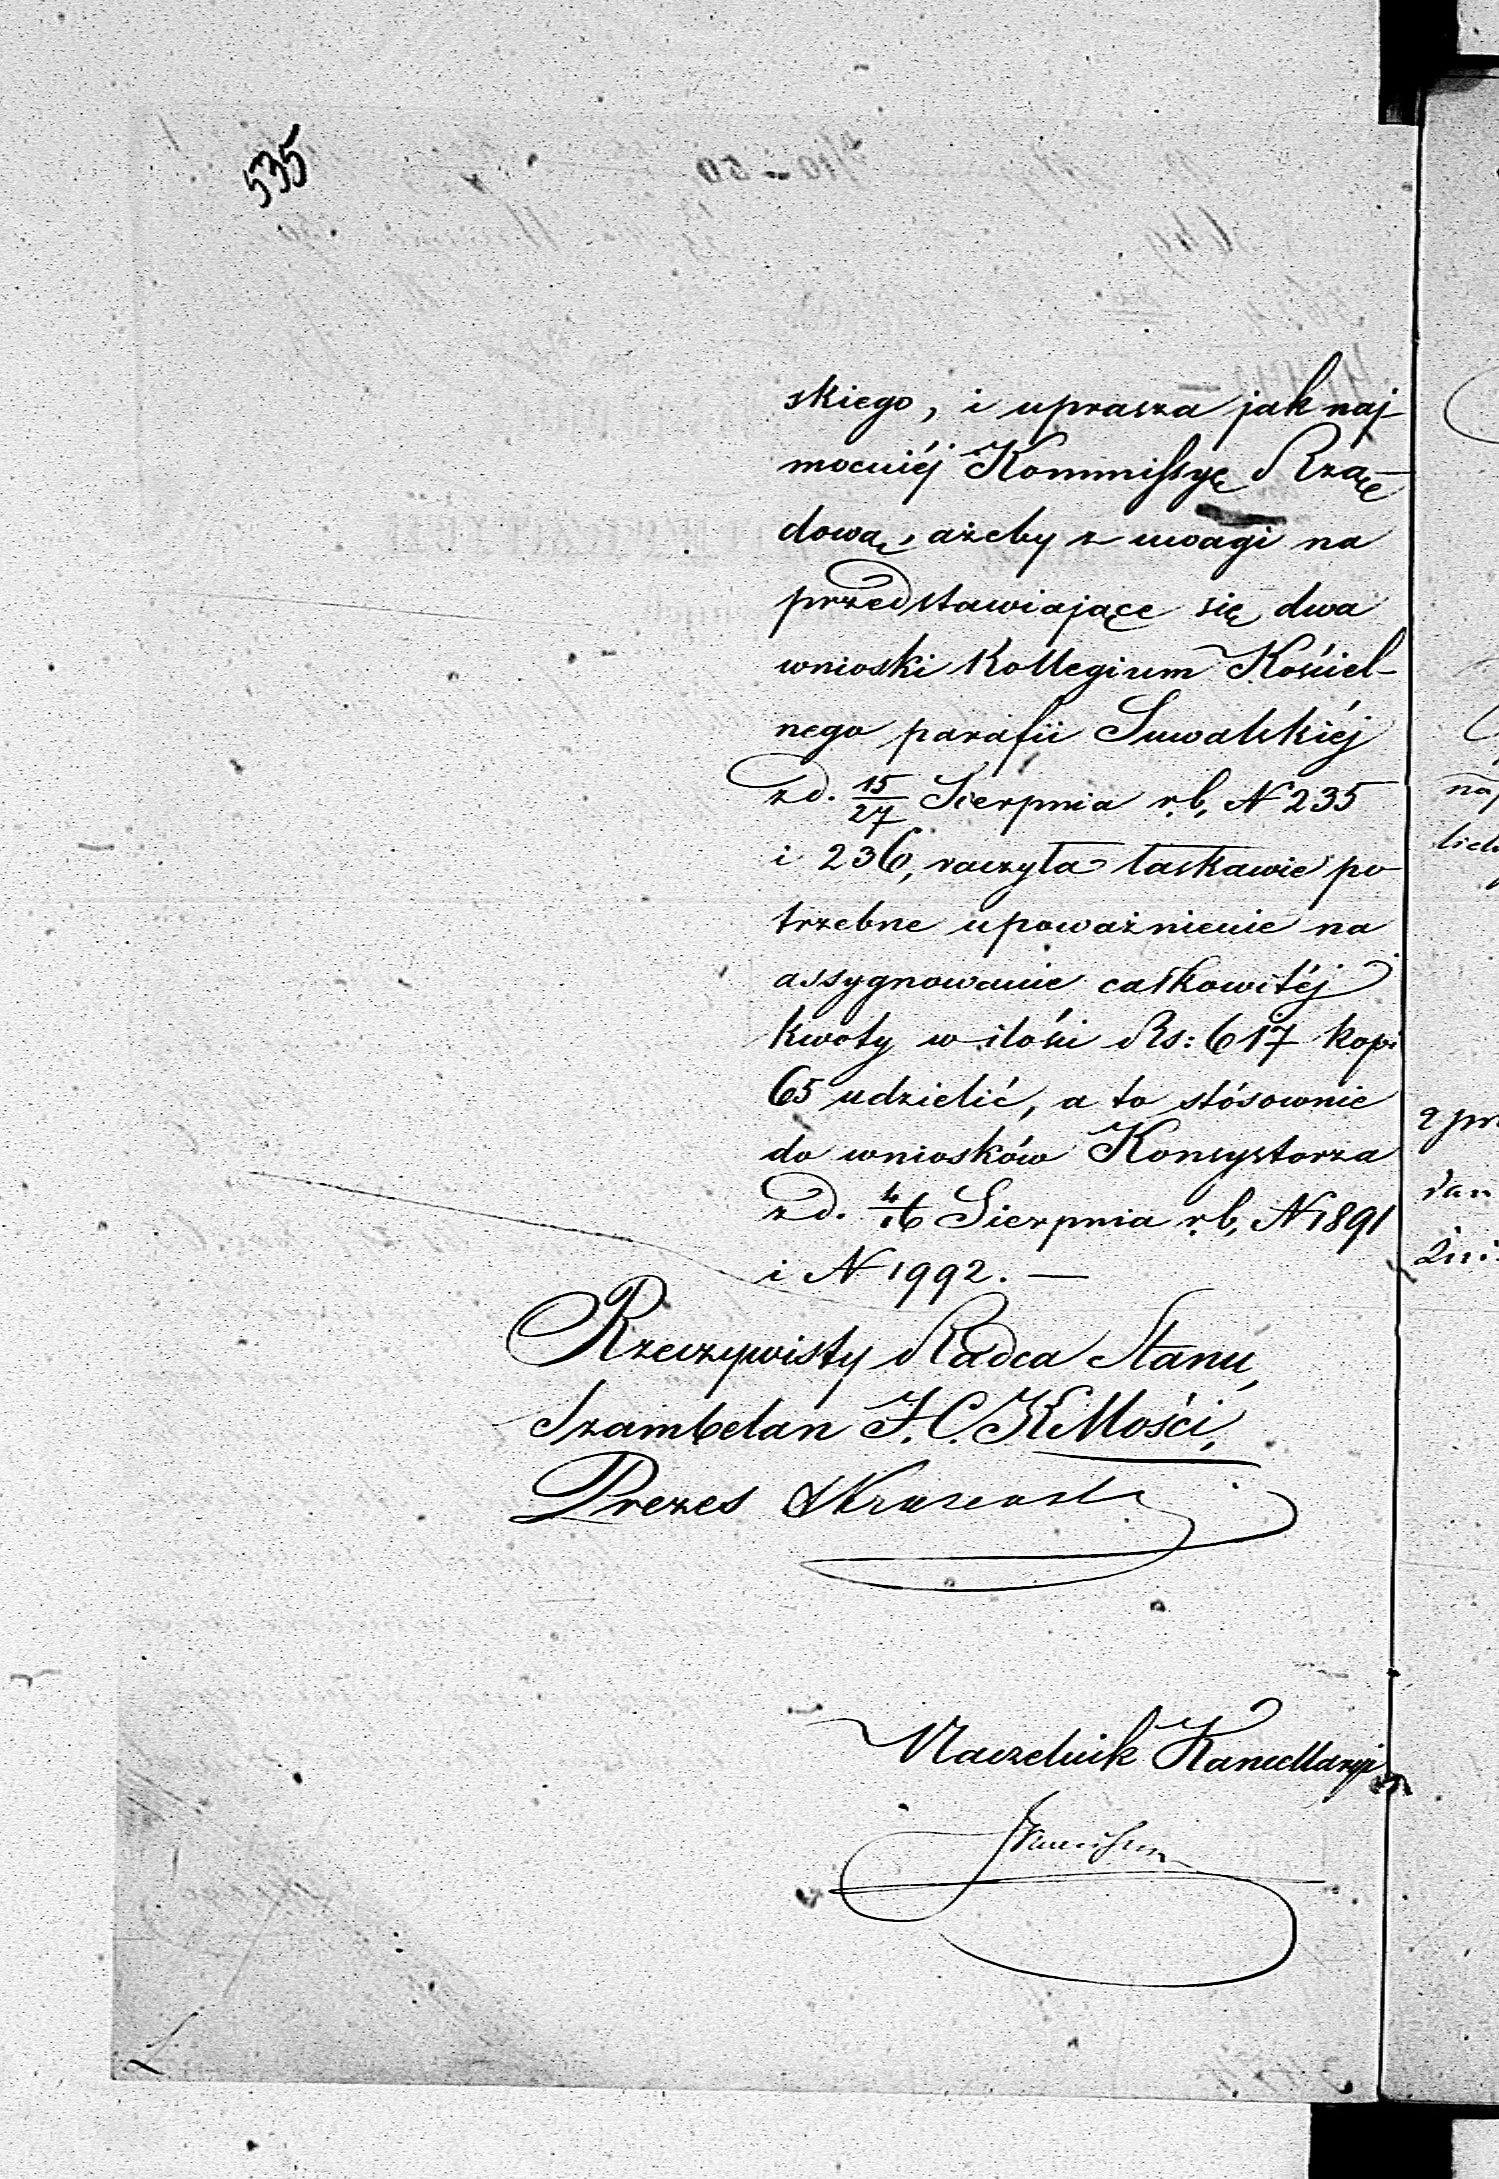 535
skiego, i uprasza jak naj-
mocniéj Kommissyę Rzą-
dową, ażeby z uwagi na
przedstawiające się dwa
wnioski Kollegium Kościel-
nego parafii Suwalskiéj
z d. 15/27 Sierpnia r.b. N 235
i 236, raczyła łaskawie po-
trzebne upoważnienie na
assygnowanie całkowitéj
kwoty w ilości Rs: 617 kop:
65 udzielić, a to stósownie
do wniosków Konsystorza
z d. 4/16 Sierpnia r.b. N 1891
i N 1992. —
Rzeczywisty Radca Stanu,
Szambelan J. C. K Mości,
Prezes
Naczelnik Kancellaryi